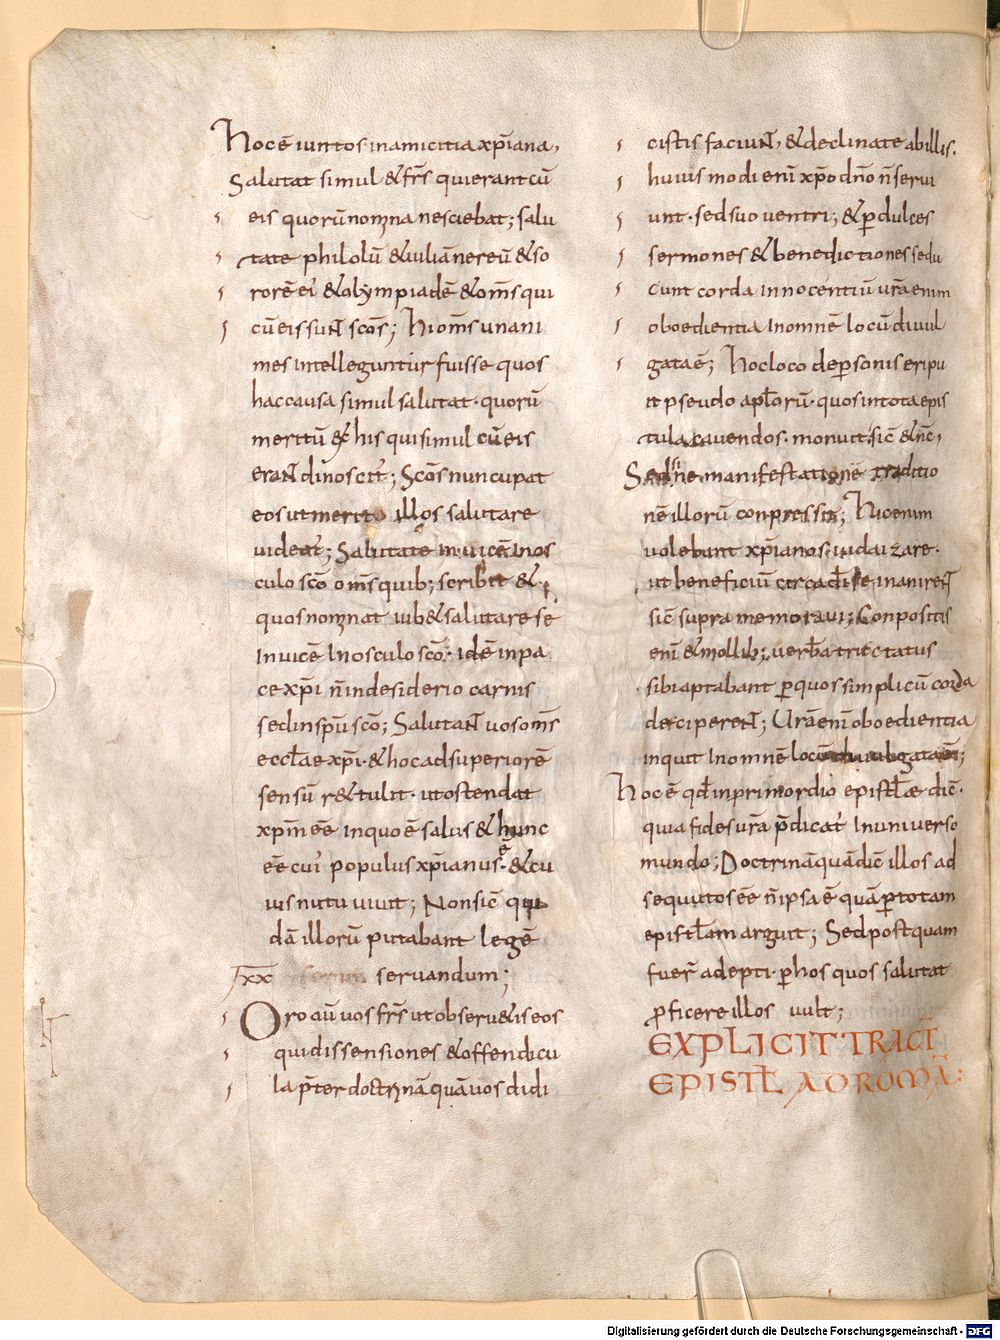 Hoc ē iunctos in amicitia xp̄iana,
Salutat simul & fr̄s qui erant cū
eis quorū nomina nesciebat; salu
tate philolū & iuliā nereū & so
rorē ei' & olympiadē & om̄s qui
cū eis sunt sc̄os; Hi om̄s unani
mes intelleguntur fuisse quos
hac causa simul salutat· quorū
meritū ex his qui simul cū eis
erant dinoscit'; Sc̄os nuncupat
eos ut merito illos salutare
uideat'; Salutate inuicē in os
culo sc̄o om̄s quib; scribit &
quos nominat iub& salutare se
Inuicē In osculo sc̄o· idē in pa
ce xp̄i n̄ in desiderio carnis
sed in sp̄u sc̄o; Salutant uos om̄s
eccl̄ae xp̄i· & hoc ad superiorē
sensū r&tulit· ut ostendat
xp̄m eē in quo ē salus & hunc
eē cui' populus xp̄ianus ē· & cu
ius nutu uiuit; Non sic ē qui
dā illorū putabant legē
servandum;
Oro aū uos fr̄s ut obseru&is eos
qui dissensiones & offendicu
la p̄ter doctrinā quā uos didi
cistis faciunt, & declinate ab illis.
huius modi enī xp̄o dn̄o n̄ serui
unt· sed suo ventri; & p̱ dulces
sermones & benedictiones sedu
cunt corda innocentiū ur̄a enim
oboedientia In omnē locū diuul
gata ē; Hoc loco de p̱sonis eripu
it pseudo apl̄orū· quos in tota epis
tula cauendos· monuit sic̄ & nc̄,
Sed sine manifestatione traditio
nē illorū conpressit; Hi enim
volebant xp̄ianos iudaizare·
ut beneficiū circa di fe inanirent
sic̄ supra memoraui; Conpositis
enī & mollib; uerba tractatus
sibi aptabant p̱ quos simpliciū corda
deciperent; Ur̄a enī oboedientia
inquit In omnē locū diuulgata ē;
Hoc ē qd̄ in primordio epistl̄ae dic̄·
quia fides ur̄a p̄dicat' In universo
mundo; Doctrinā quā dic̄ illos ad
sequutos eē n̄ ipsa ē quā p̱ totam
epistl̄am arguit; Sed postquam
fuer̄ adepti· p̱ hos quos salutat
p̱ficere illos uult;
EXPLICIT TRACT̄
EPISTL̄ AD ROMĀ:
Digitalisierung gefördert durch die Deutsche Forschungsgemeinschaft - DFG